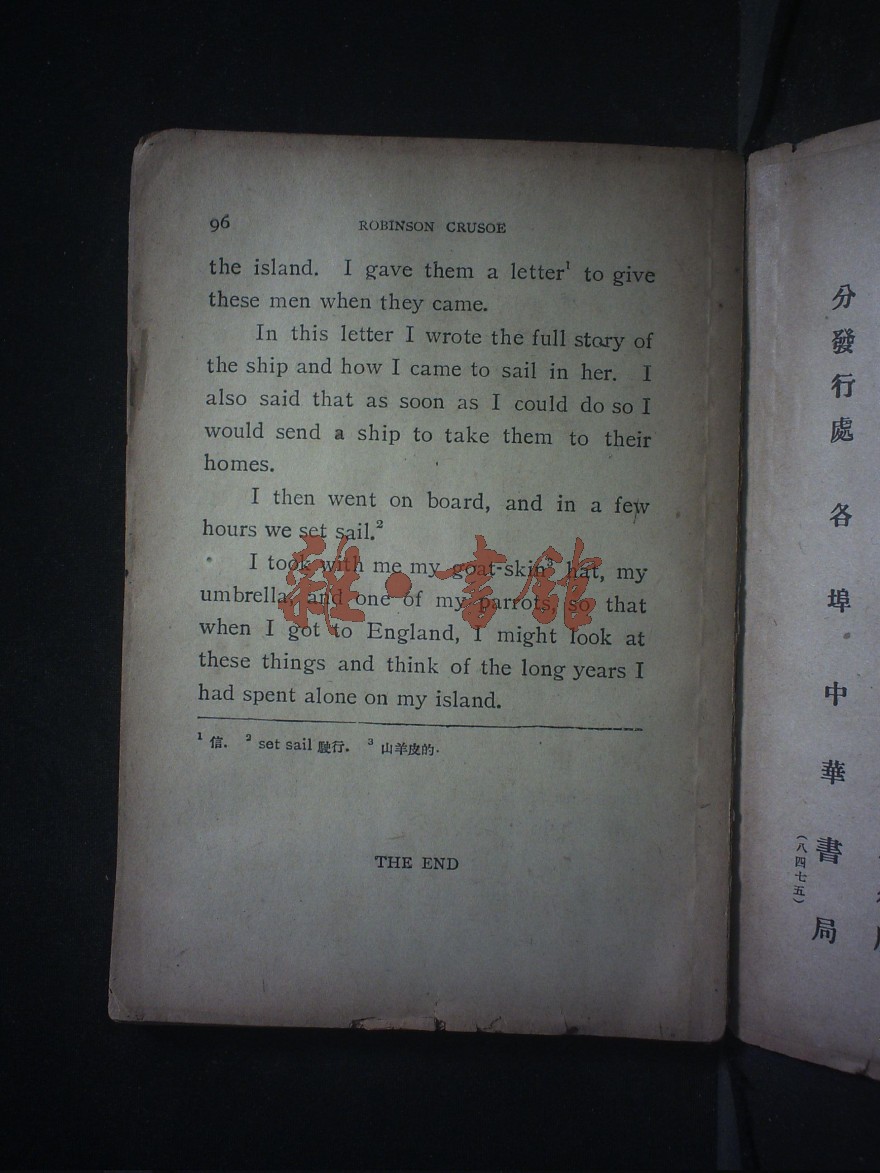 96 ROBINSON CRUSOE
the island. I gave them a letter¹ to give
these men when they came.
In this letter I wrote the full story of
the ship and how I came to sail in her. I
also said that as soon as I could do so I
would send a ship to take them to their
homes.
I then went on board, and in a few
hours we set sail.²
I took with me my goat-skin³ hat, my
umbrella, and one of my parrots, so that
when I got to England, I might look at
these things and think of the long years I
had spent alone on my island.
¹ 信. ² set sail 駛行. ³ 山羊皮的.
THE END
雜·書館
分發行處 各埠中華書局
(八四七五)